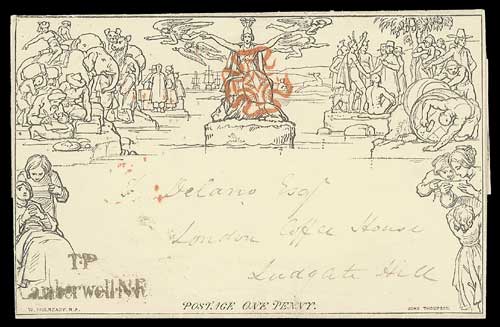 Delano Esqr
London Coffee House
Ludgate Hill
TP
Camberwell N.E
W. MULREADY. R.A.
POSTAGE ONE PENNY.
JOHN THOMPSON.